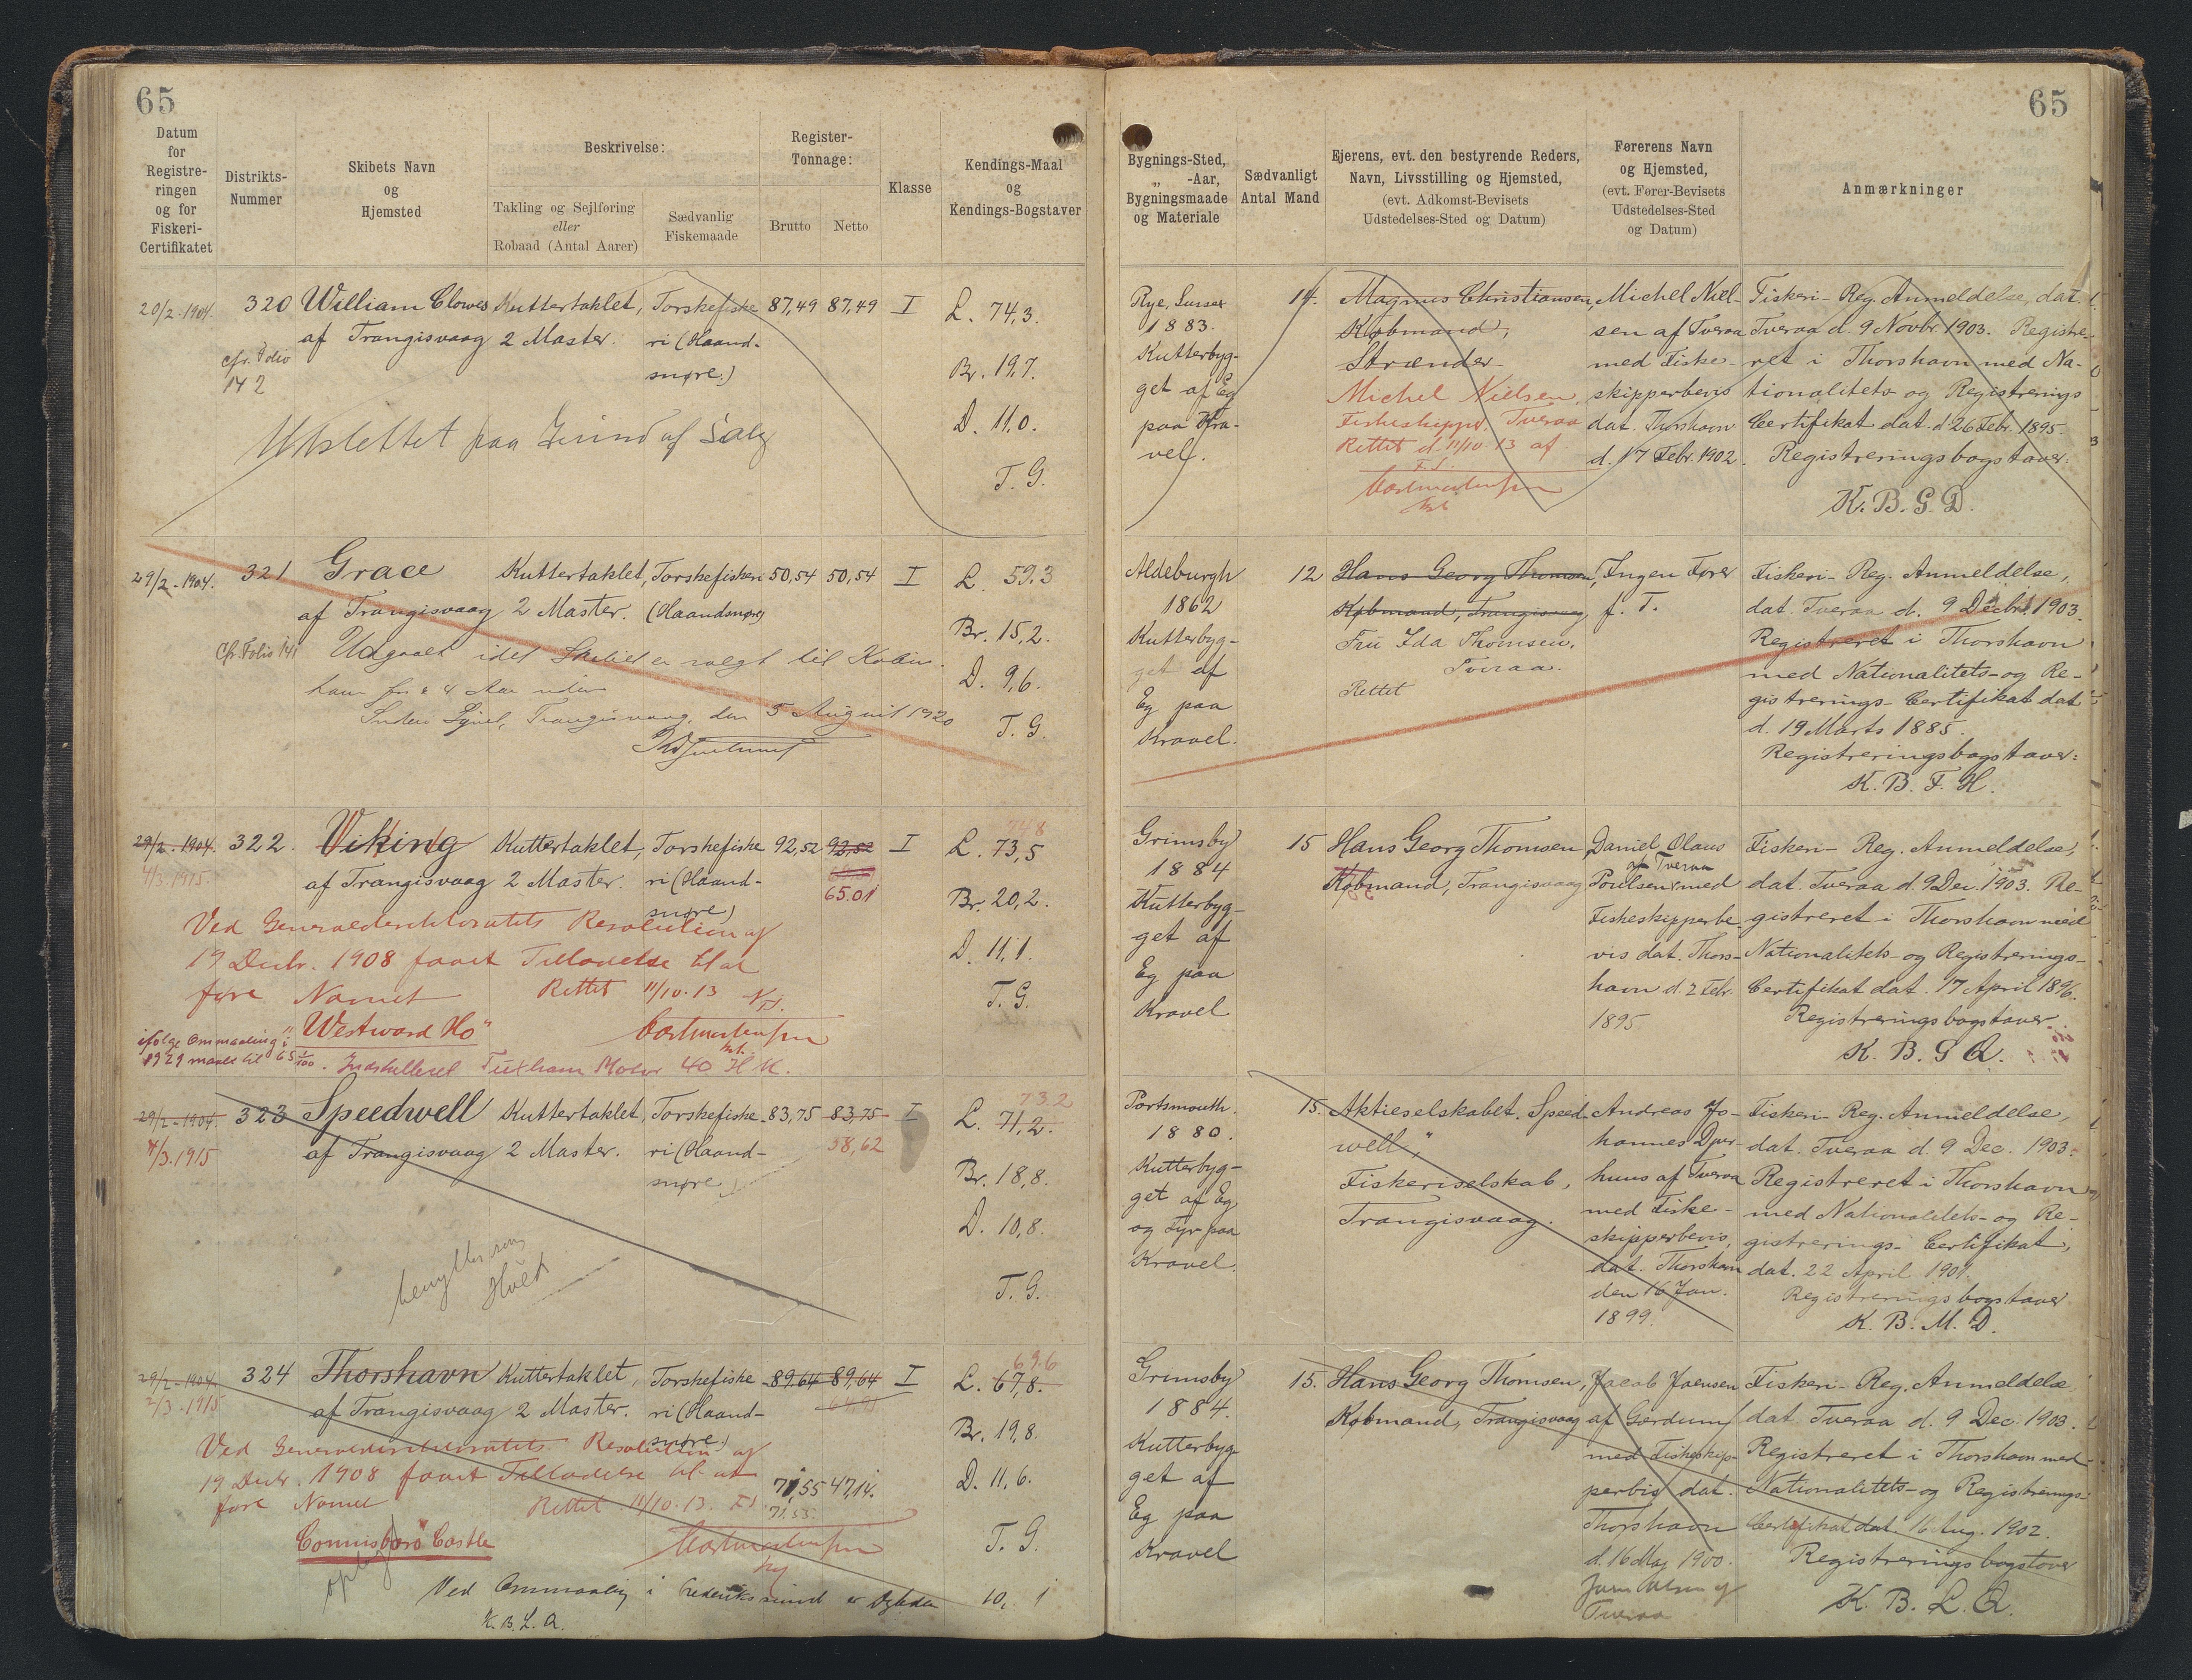 65
65
Datum
for
Registre-
ringen
og for
Fiskeri-
Certifikatet
Distrikts-
Nummer
Skibets Navn
og
Hjemsted
Beskrivelse:
Takling og Sejlføring
eller
Robaad (Antal Aarer)
Sædvanlig
Fiskemaade
Register-
Tonnage:
Brutto
Netto
Klasse
Kendings-Maal
og
Kendings-Bogstaver
Bygnings-Sted,
„ -Aar,
Bygningsmaade
og Materiale
Sædvanligt
Antal Mand
Ejerens, evt. den bestyrende Reders,
Navn, Livsstilling og Hjemsted,
(evt. Adkomst-Bevisets
Udstedelses-Sted og Datum)
Førerens Navn
og Hjemsted,
(evt. Fører-Bevisets
Udstedelses-Sted
og Datum)
Anmærkninger
20/2. 1904.
cfr. Folio
142
320
William Clowes
af Trangisvaag
Kuttertaklet,
2 Master.
Torskefiske
ri (Haand-
snøre.)
87,49
87,49
I
L. 74,3.
Br. 19,7.
D. 11,0.
T. G.
Udslettet paa Grund af Salg
Rye, Sussex
1883.
Kutterbyg-
get af Eg
paa Kra-
vel.
14.
Magnus Christiansen,
Købmand,
Strænder
Michel Nielsen,
Fiskeskipper, Tveraa
Rettet d. 11/10 13 af
Michel Niel-
sen af Tveraa
med Fiske-
skipperbevis
dat. Thorshavn
d. 17 Febr. 1902.
Fiskeri- Reg. Anmeldelse, dat.
Tveraa d. 9 Novbr 1903. Registre-
ret i Thorshavn med Na-
tionalitets og Registrerings
Certifikat dat. d. 26 Febr. 1895.
Registreringsbogstaver:
K. B. G. D.
29/2 - 1904.
Cfr. Folio 141
321
Grace
af Trangisvaag
Kuttertaklet,
2 Master.
Torskefiskeri
(Haandsnøre)
50,54
50,54
I
L. 59.3
Br. 15,2.
D. 9,6.
T. G.
Udgaaet idet Skibet er solgt til Købin.
havn for
Trangisvaag, den 5 August 1920
Aldeburgh
1862
Kutterbyg-
get af
Eg paa
Kravel.
12
Hans Georg Thomsen,
Købmand, Trangisvaag
Fru Ida Thomsen,
Tveraa.
Rettet
Ingen Fører
f. T.
Fiskeri- Reg. Anmeldelse,
dat. Tveraa d. 9 Decbr. 1903.
Registreret i Thorshavn
med Nationalitets- og Re-
gistrerings- Certifikat dat
d. 19 Marts 1885.
Registreringsbogstaver:
K. B. F. H.
29/2. 1904.
4/3. 1915.
322.
Viking
af Trangisvaag
Kuttertaklet,
2 Master.
Torskefiske
ri (Haand-
snøre)
92,52
92,52
65.01
I
74,8
L. 73,5
Br. 20,2.
D. 11,1.
T. G.
Ved Generaldirektoratets Resolution af
19 Decbr. 1908 faaet Tilladelse til at
føre Navnet
Rettet 11/10.13
"Westward Ho"
ifølge Ommaaling i
1929 maalt til 65 1/100. Indstalleret Tuxham Motor 40 H K.
Grimsby
1884
Kutterbyg-
get af
Eg paa
Kravel
15
Hans Georg Thomsen
Købmand, Trangisvaag
Daniel Olaus
af Tveraa
Poulsen med
Fiskeskipperbe-
vis dat. Thors-
havn d. 2 Febr.
1895
Fiskeri- Reg. Anmeldelse,
dat. Tveraa d. 9 Dec. 1903. Re-
gistreret i Thorshavn med
Nationalitets- og Registrerings-
Certifikat dat. 17 April 1896.
Registreringsbogstaver.
K. B. G Q.
29/2 - 1904.
4/3. 1915
323
Speedwell
af Trangisvaag
Kuttertaklet,
2 Master.
Torskefiske
ri (Haand-
snøre)
83,75
83,75
58,62
I
73.2
L. 71,2.
Br. 18,8.
D. 10,8.
T. G.
benyttes som
Hulk
Portsmouth.
1880.
Kutterbyg-
get af Eg
og Fyr paa
Kravel.
15.
Aktieselskabet. Speed-
well,"
Fiskeriselskab,
Trangisvaag.
Andreas Jo-
hannes Djur-
huus af Tveraa
med Fiske-
skipperbevis,
dat. Thorshavn
den 16 Jan.
1899.
Fiskeri- Reg. Anmeldelse,
dat. Tveraa d. 9 Dec. 1903.
Registreret i Thorshavn
med Nationalitets- og Re-
gistrerings- Certifikat,
dat. 22 April 1901.
Registreringsbogstaver
K. B. M. D.
29/2 - 1904.
2/3 - 1915
324
Thorshavn
af Trangisvaag
Kuttertaklet,
2 Master.
Torskefiske
ri (Haand-
snøre.)
89,64
89,64
I
69.6
L. 67,8.
Br. 19,8.
D. 11,6.
T. G.
Ved Generaldirektoratets Resolution af
19 Decbr. 1908 faaet Tilladelse til at
føre Navnet
71,55 47,14.
71,55.
Rettet 11/10.13.
Connisboro Castle
Ved Ommaaling i Frederikssund er Dybden 10, 1
K. B. L. Q.
Grimsby
1884.
Kutterbyg-
get af
Eg paa
Kravel
15.
Hans Georg Thomsen,
Købmand, Trangisvaag
Jacob Joensen
af Gærdum
med Fiskeskip-
perbis dat.
Thorshavn
d. 16 Maj 1900.
Tveraa
Fiskeri- Reg. Anmeldelse
dat Tveraa d. 9 Dec. 1903.
Registreret i Thorshavn med
Nationalitets- og Registrerings-
Certifikat dat. 16 Aug. 1902.
Registreringsbogstaver
K. B. L. Q.